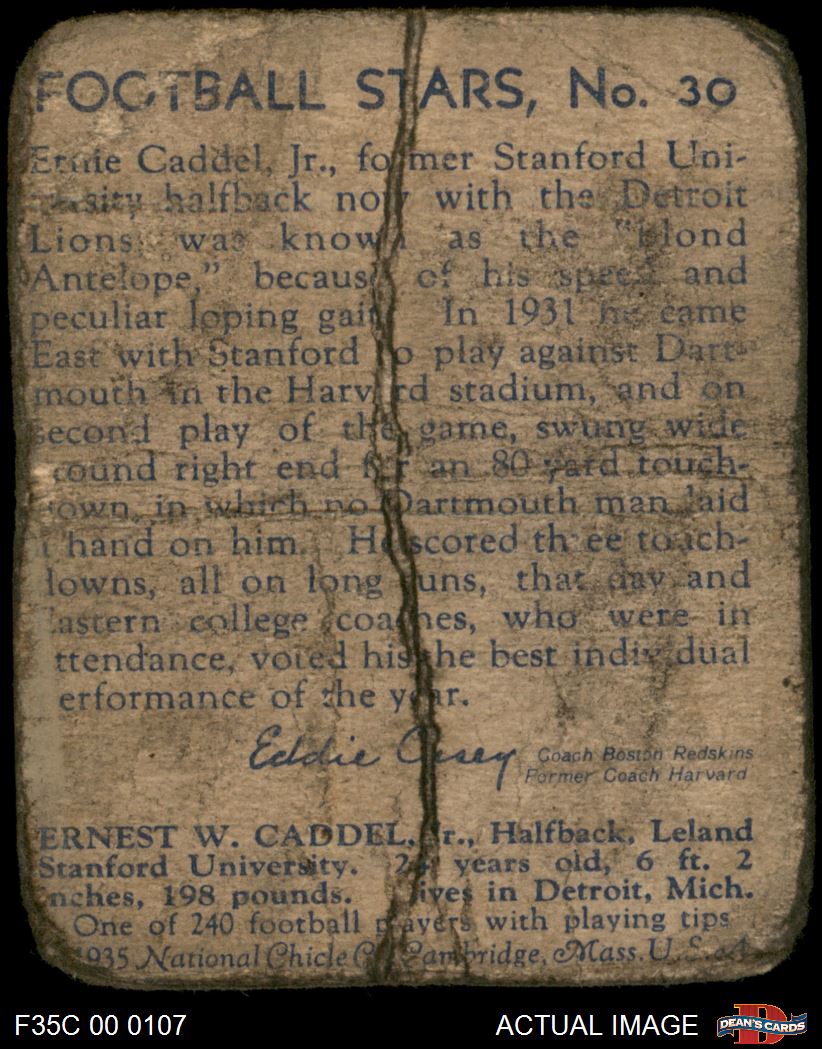 FOOTBALL STARS, No. 30
Ernie Caddel, Jr., former Stanford Uni-
versity halfback now with the Detroit
Lions, was known as the "Blond
Antelope," because of his speed and
peculiar loping gait. In 1931 he came
East with Stanford to play against Dart-
mouth in the Harvard stadium, and on
second play of the game, swung wide
round right end for an 80 yard touch-
down, in which no Dartmouth man laid
a hand on him. He scored three touch-
downs, all on long runs, that day and
Eastern college coaches, who were in
attendance, voted his the best individual
performance of the year.
Eddie Casey Coach Boston Redskins
Former Coach Harvard
ERNEST W. CADDEL, Jr., Halfback, Leland
Stanford University. 24 years old, 6 ft. 2
inches, 198 pounds. Lives in Detroit, Mich.
One of 240 football players with playing tips
1935 National Chicle Co. Cambridge, Mass. U.S.A
F35C 00 0107 ACTUAL IMAGE DEAN'S CARDS